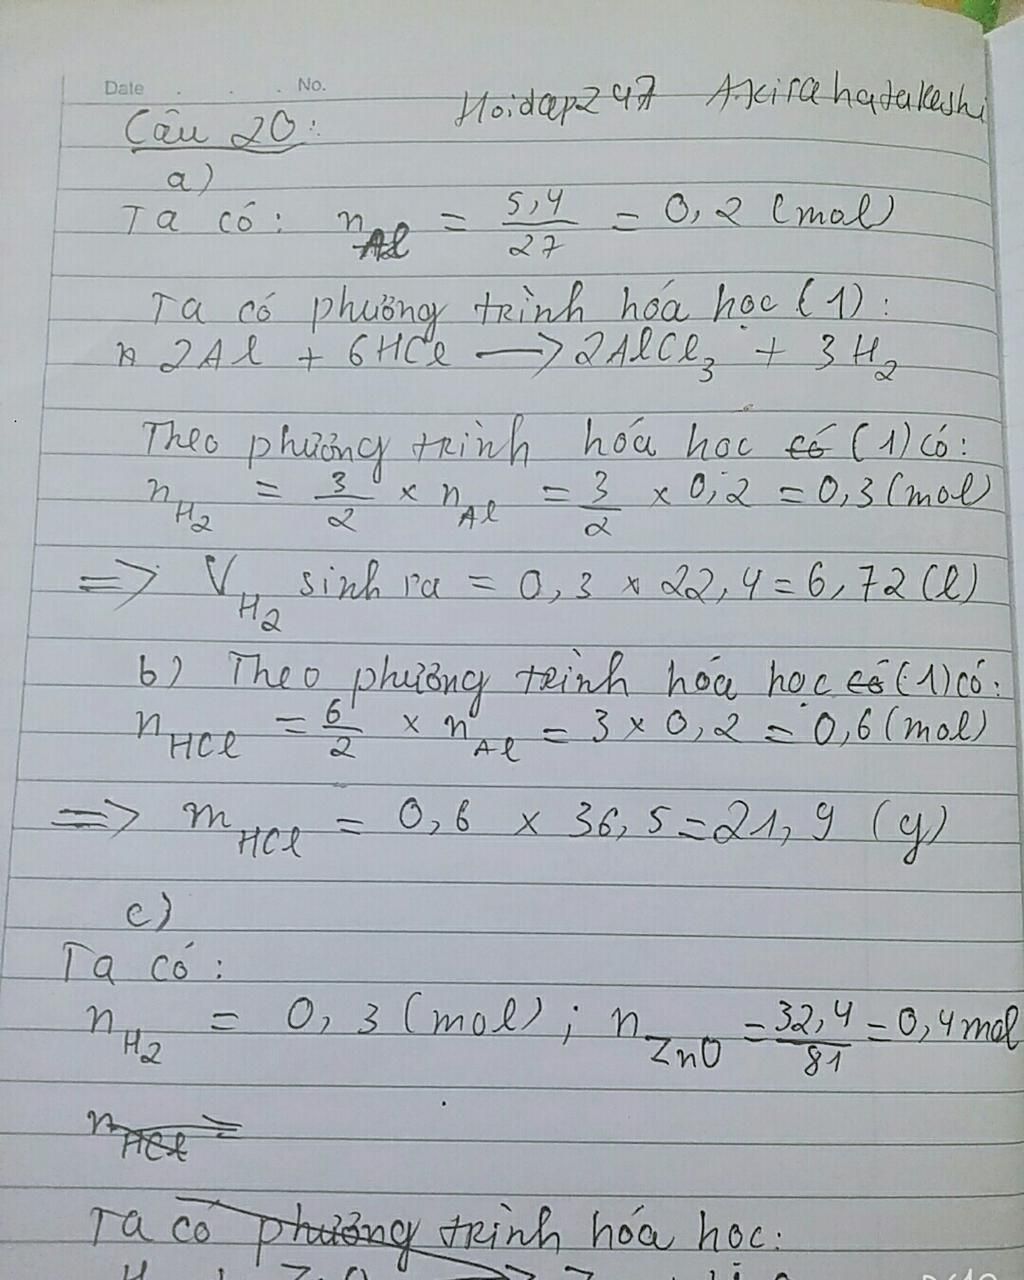 Date . . . No.
Hoidap247 Akirahatakashi
Câu 20:
a)
Ta có: n_Al = 5,4/27 = 0,2 (mol)
Ta có phương trình hóa học (1):
2Al + 6HCl → 2AlCl₃ + 3H₂
Theo phương trình hóa học có (1) có:
n_H₂ = 3/2 × n_Al = 3/2 × 0,2 = 0,3 (mol)
=> V_H₂ sinh ra = 0,3 × 22,4 = 6,72 (l)
b) Theo phương trình hóa học có (1) có:
n_HCl = 6/2 × n_Al = 3 × 0,2 = 0,6 (mol)
=> m_HCl = 0,6 × 36,5 = 21,9 (g)
c)
Ta có:
n_H₂ = 0,3 (mol); n_ZnO = 32,4/81 = 0,4 mol
n_HCl =
Ta có phương trình hóa học: